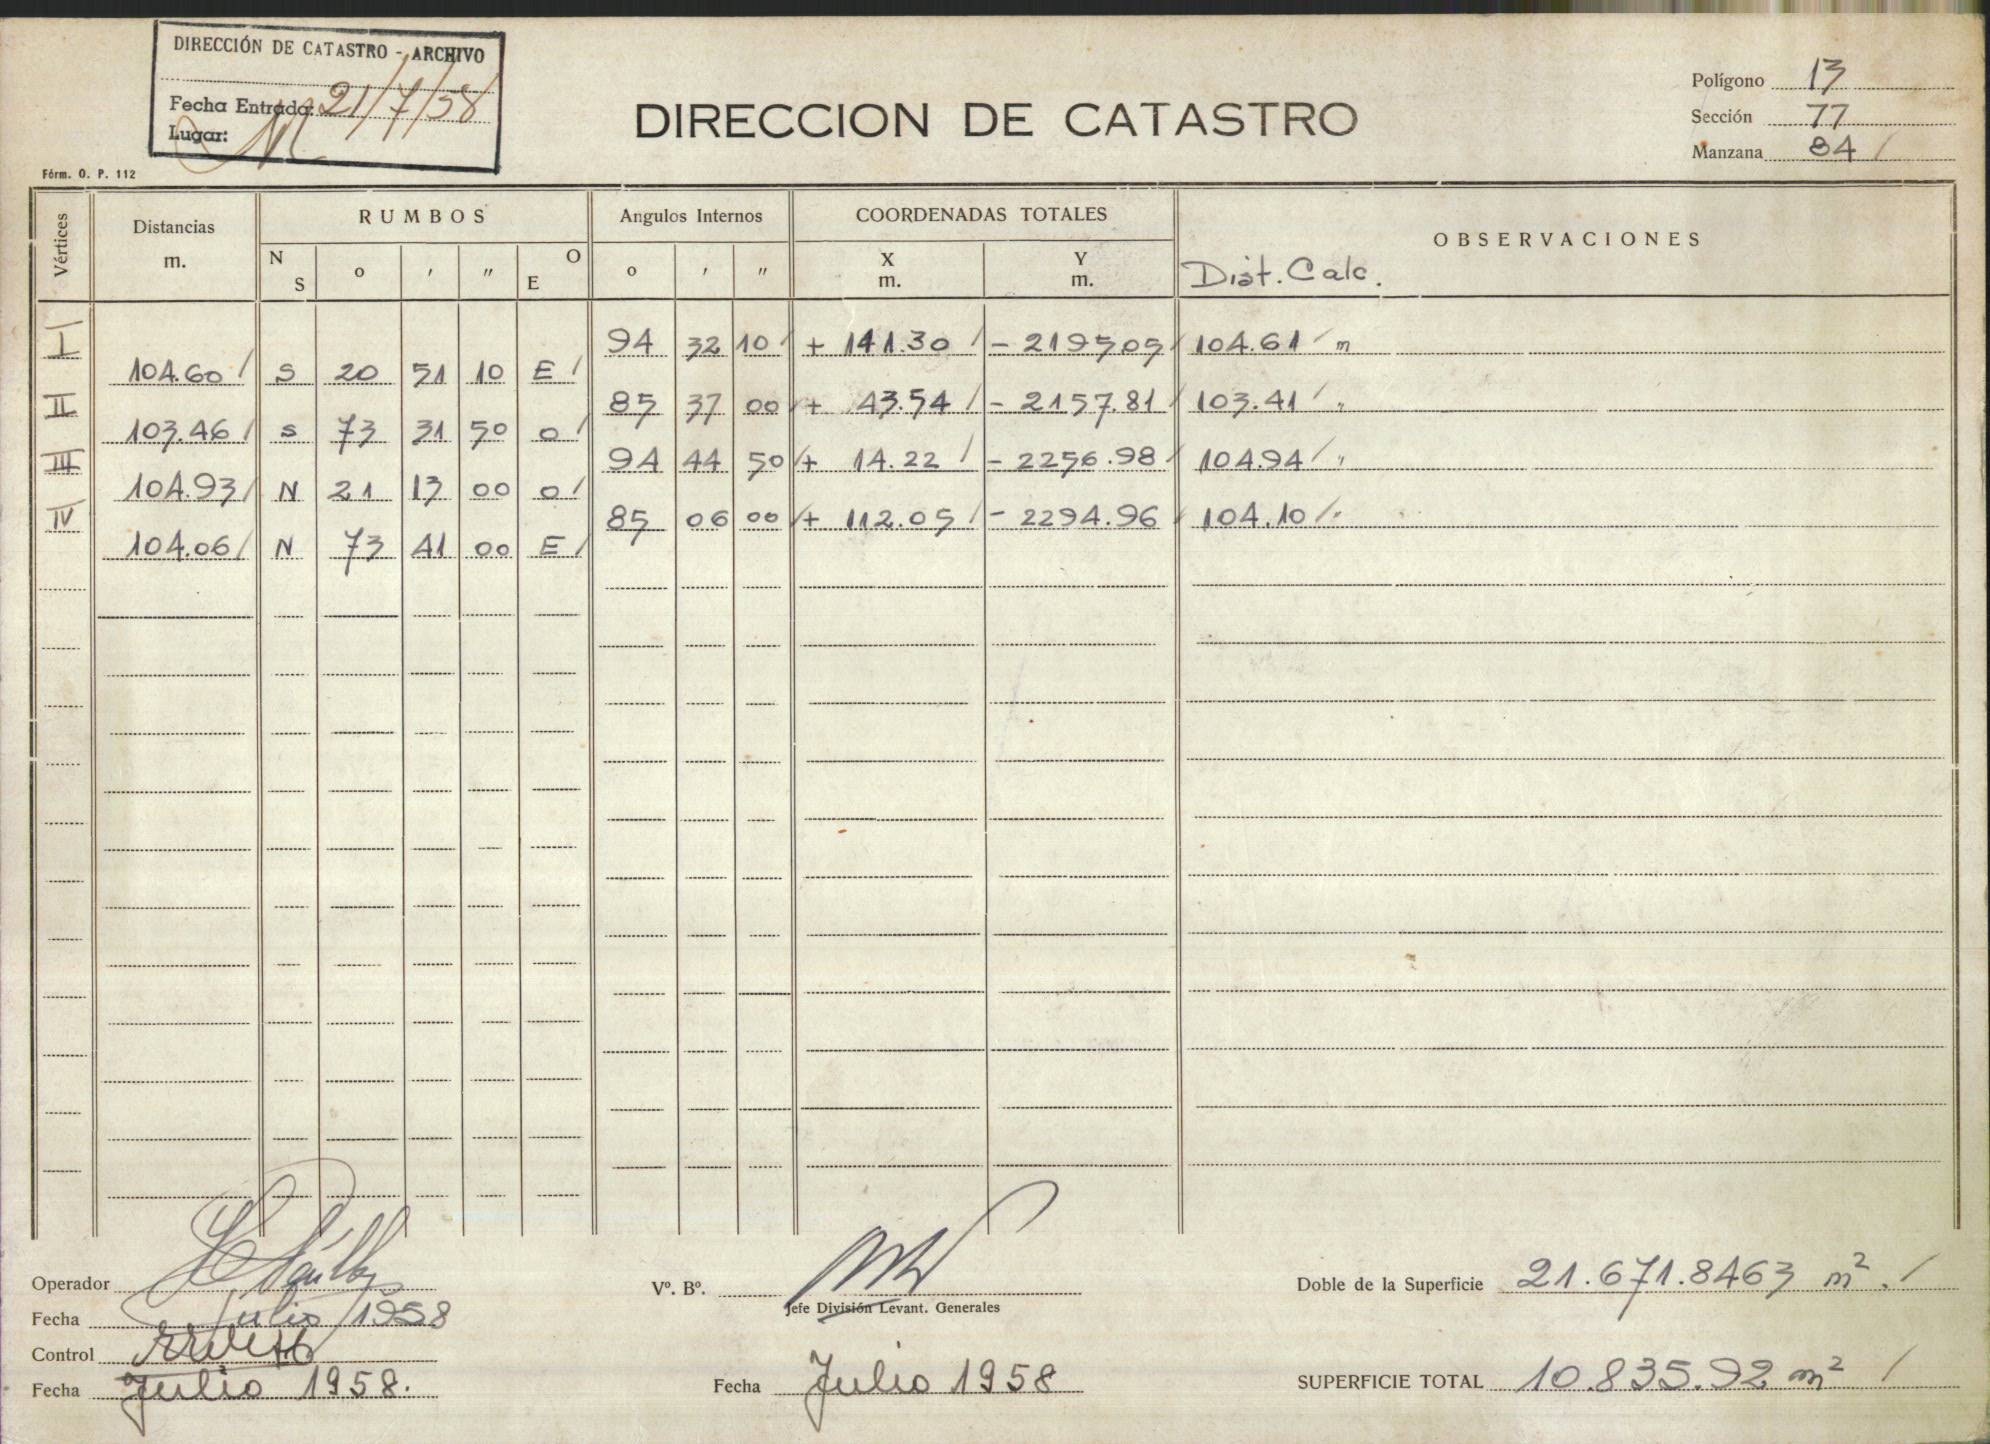 DIRECCIÓN DE CATASTRO - ARCHIVO
Fecha Entrada: 21/7/58
Lugar:
Fórm. O. P. 112
DIRECCION DE CATASTRO
Polígono 13
Sección 77
Manzana 84 /
Vértices Distancias m. RUMBOS Angulos Internos COORDENADAS TOTALES OBSERVACIONES
N S o ' " O E o ' " X m. Y m. Dist. Calc.
I 94 32 10 / + 141.30 / - 2195.05 / 104.61 / m
104.60 / S 20 51 10 E /
II 85 37 00 / + 43.54 / - 2157.81 / 103.41 / "
103.46 / S 73 31 50 O /
III 94 44 50 / + 14.22 / - 2256.98 / 104.94 / "
104.93 / N 21 13 00 O /
IV 85 06 00 / + 112.05 / - 2294.96 / 104.10 / "
104.06 / N 73 41 00 E /
Operador
Fecha Julio 1958
Control
Fecha Julio 1958.
Vº. Bº.
Jefe División Levant. Generales
Fecha Julio 1958
Doble de la Superficie 21.671.8463 m². /
SUPERFICIE TOTAL 10.835.92 m² /